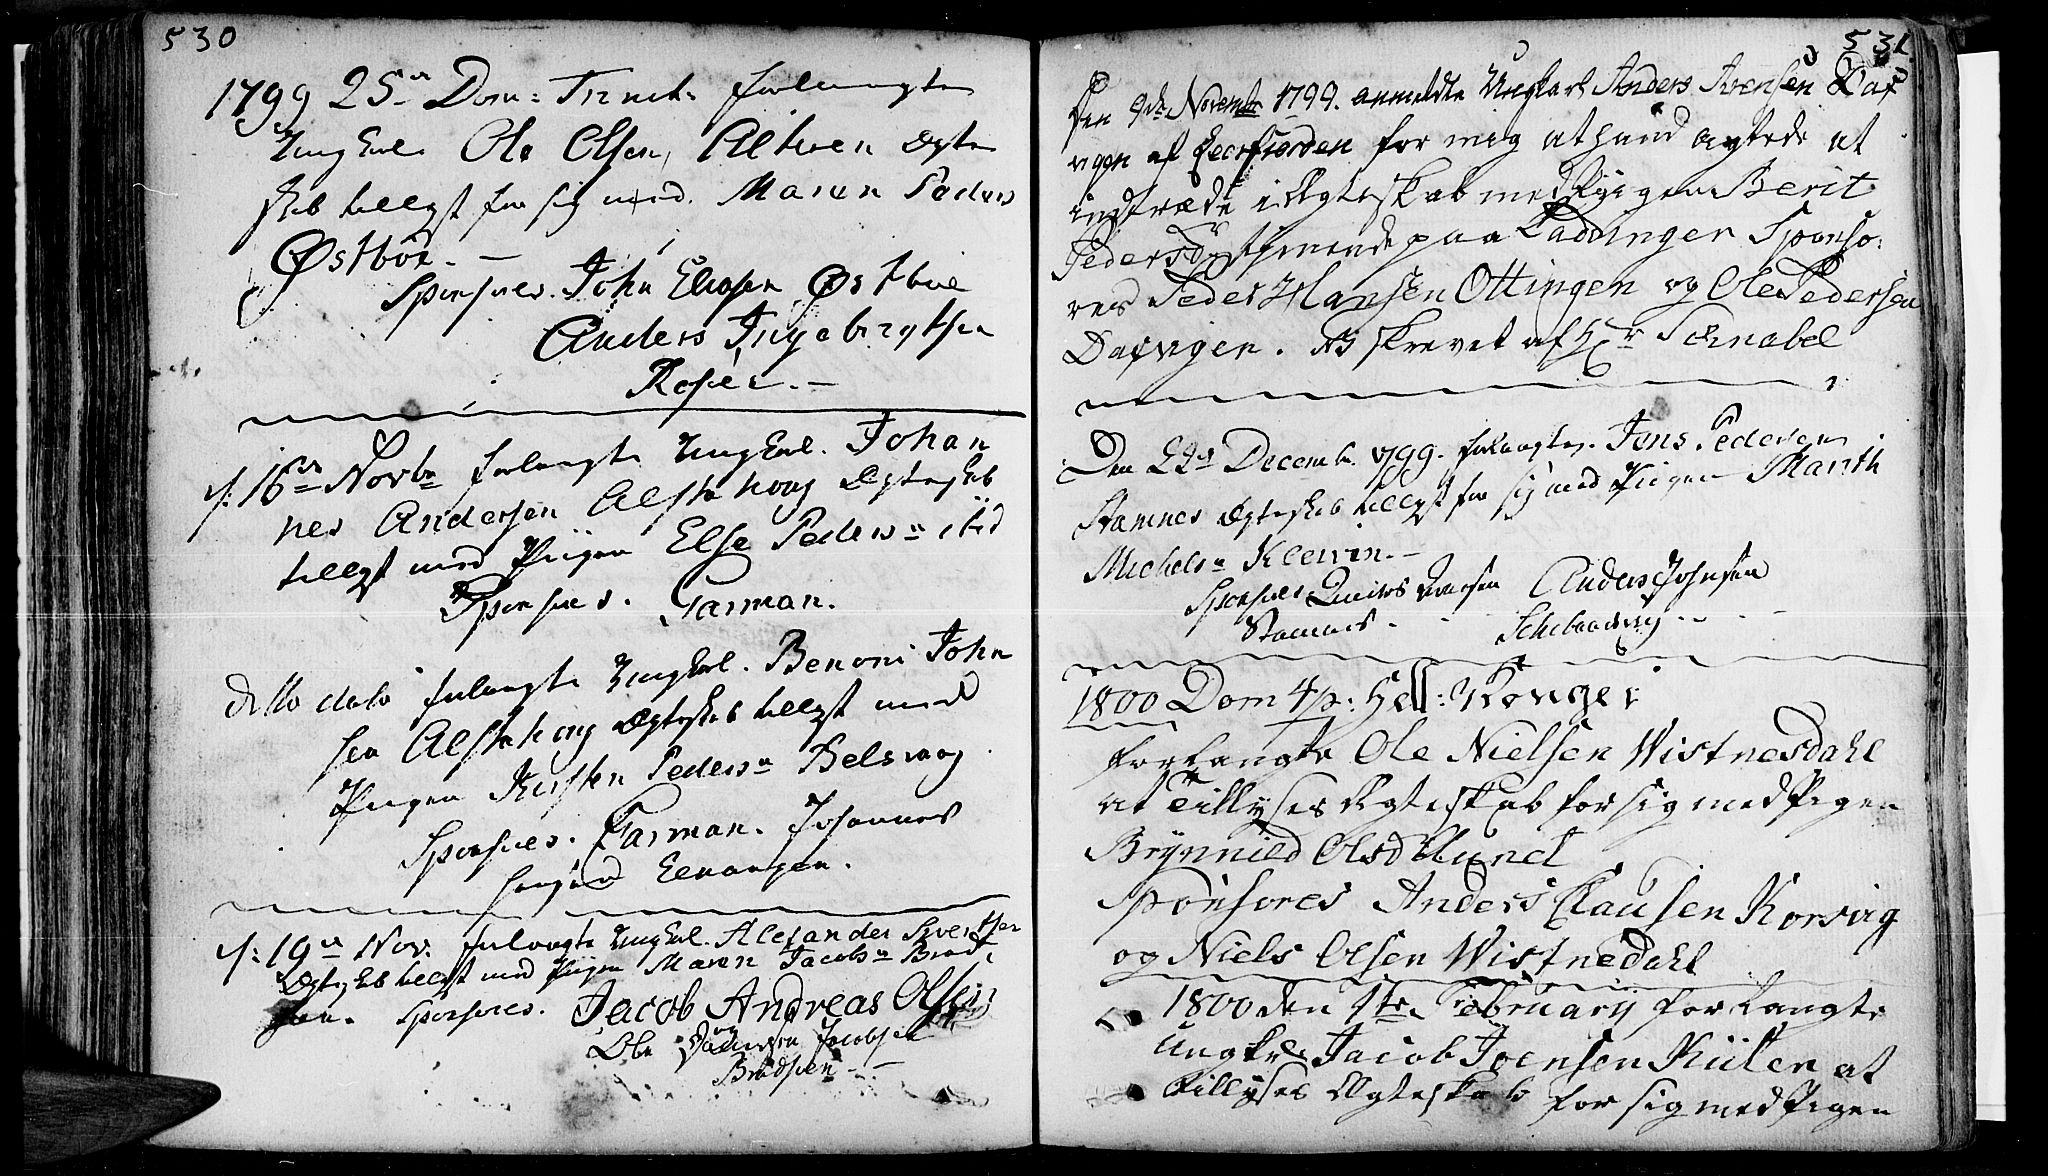 530
1799 25de Dom: Trinit: forlangte
Ungkarl Ole Olsen, Altwen Ægte
skab tillyst for sig med Maren Peders
Østbøe. —
Sponsores. John Eliasen Østbøe
Anders Ingebrigtsen
Rosøen. —
d: 16de Novbr forlangte Ungkarl. Johan
nes Andersen Alstahoug Ægteskab
tillyst med Piigen Else Pedersd ibid
Sponsores. Garman.
ditto dato forlangte Ungkarl. Benoni John
sen Alstahoug Ægteskab tillyst med
Piigen Kirsten Pedersd Belsvaag
Sponsores. Garman. Johannes
Elevansen.
d: 19de Nov. forlangte Ungkarl. Alexander Sivertsen
Ægteskab tillyst med Piigen Maren Jacobsd Brod
søen. Sponsores. Jacob Andreas Olsen
og Jacobsen
Brodsøen —
531
Den 9de Novembr 1799. anmeldte Ungkarl Anders Ivensen Daf
vigen af for mig at hand agtede at
indtræde i Ægteskab med Pigen Berit
Pedersd tienende paa Laddinger Sponso:
res Peder Hansen Ottingen og Ole Pedersen
Dafvigen. NB skrevet af Hr Schnabel
Den 22de Decembr. 1799. forlangte. Jens Pedersen
Stamnes Ægteskab tillyst for sig med Piigen Marith
Michelsd Kleivin. —
Sponsores Iversen Anders Johnsen
Stamnes. -
1800 Dom 4 p: Hell: 3 Konger
forlangte Ole Nielsen Wistnesdahl
at Tillyses Ægteskab for sig med Pigen
Brynnild Olsd Lund
Sponsores Anders Clausen Korsvig
og Niels Olsen Wistnedahl
1800 den 1te February forlangte
Ungkrl Jacob Joensen Kiilen at
tillyses Ægteskab for sig med Pigen